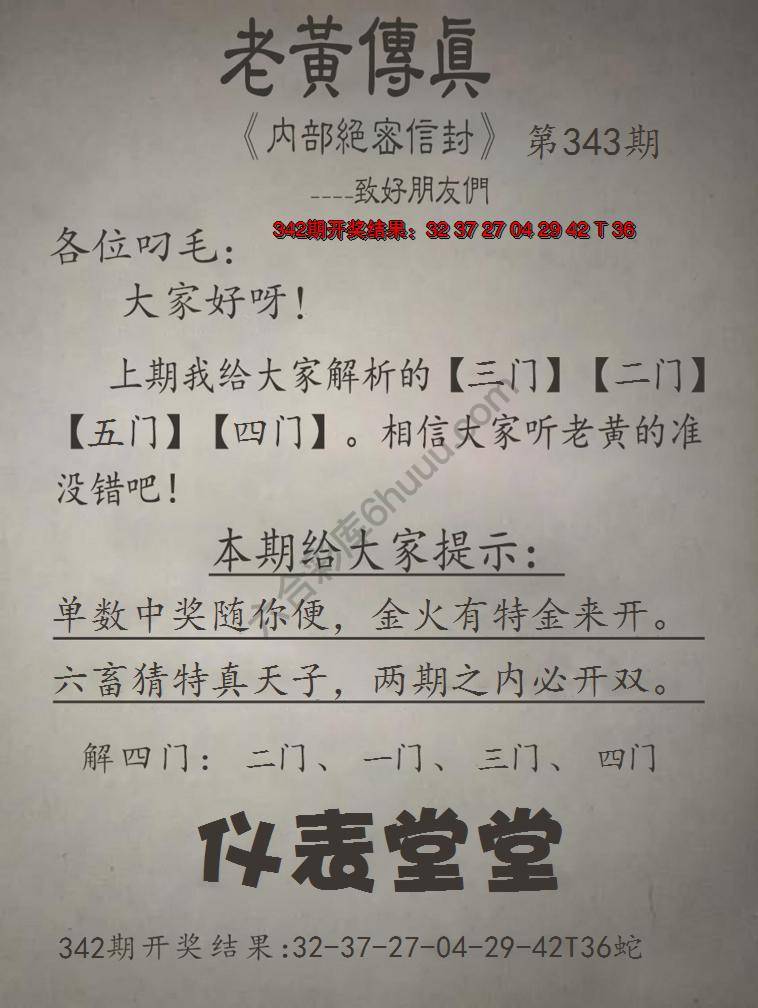 老黃傳眞
《内部絕密信封》 第343期
----致好朋友們
342期开奖结果：32 37 27 04 29 42 T 36
各位叼毛：
大家好呀！
上期我给大家解析的【三门】【二门】
【五门】【四门】。相信大家听老黄的准
没错吧！
本期给大家提示：
单数中奖随你便，金火有特金来开。
六畜猜特真天子，两期之内必开双。
解四门： 二门、 一门、 三门、 四门
仪表堂堂
342期开奖结果:32-37-27-04-29-42T36蛇
六合彩库6huuu.com